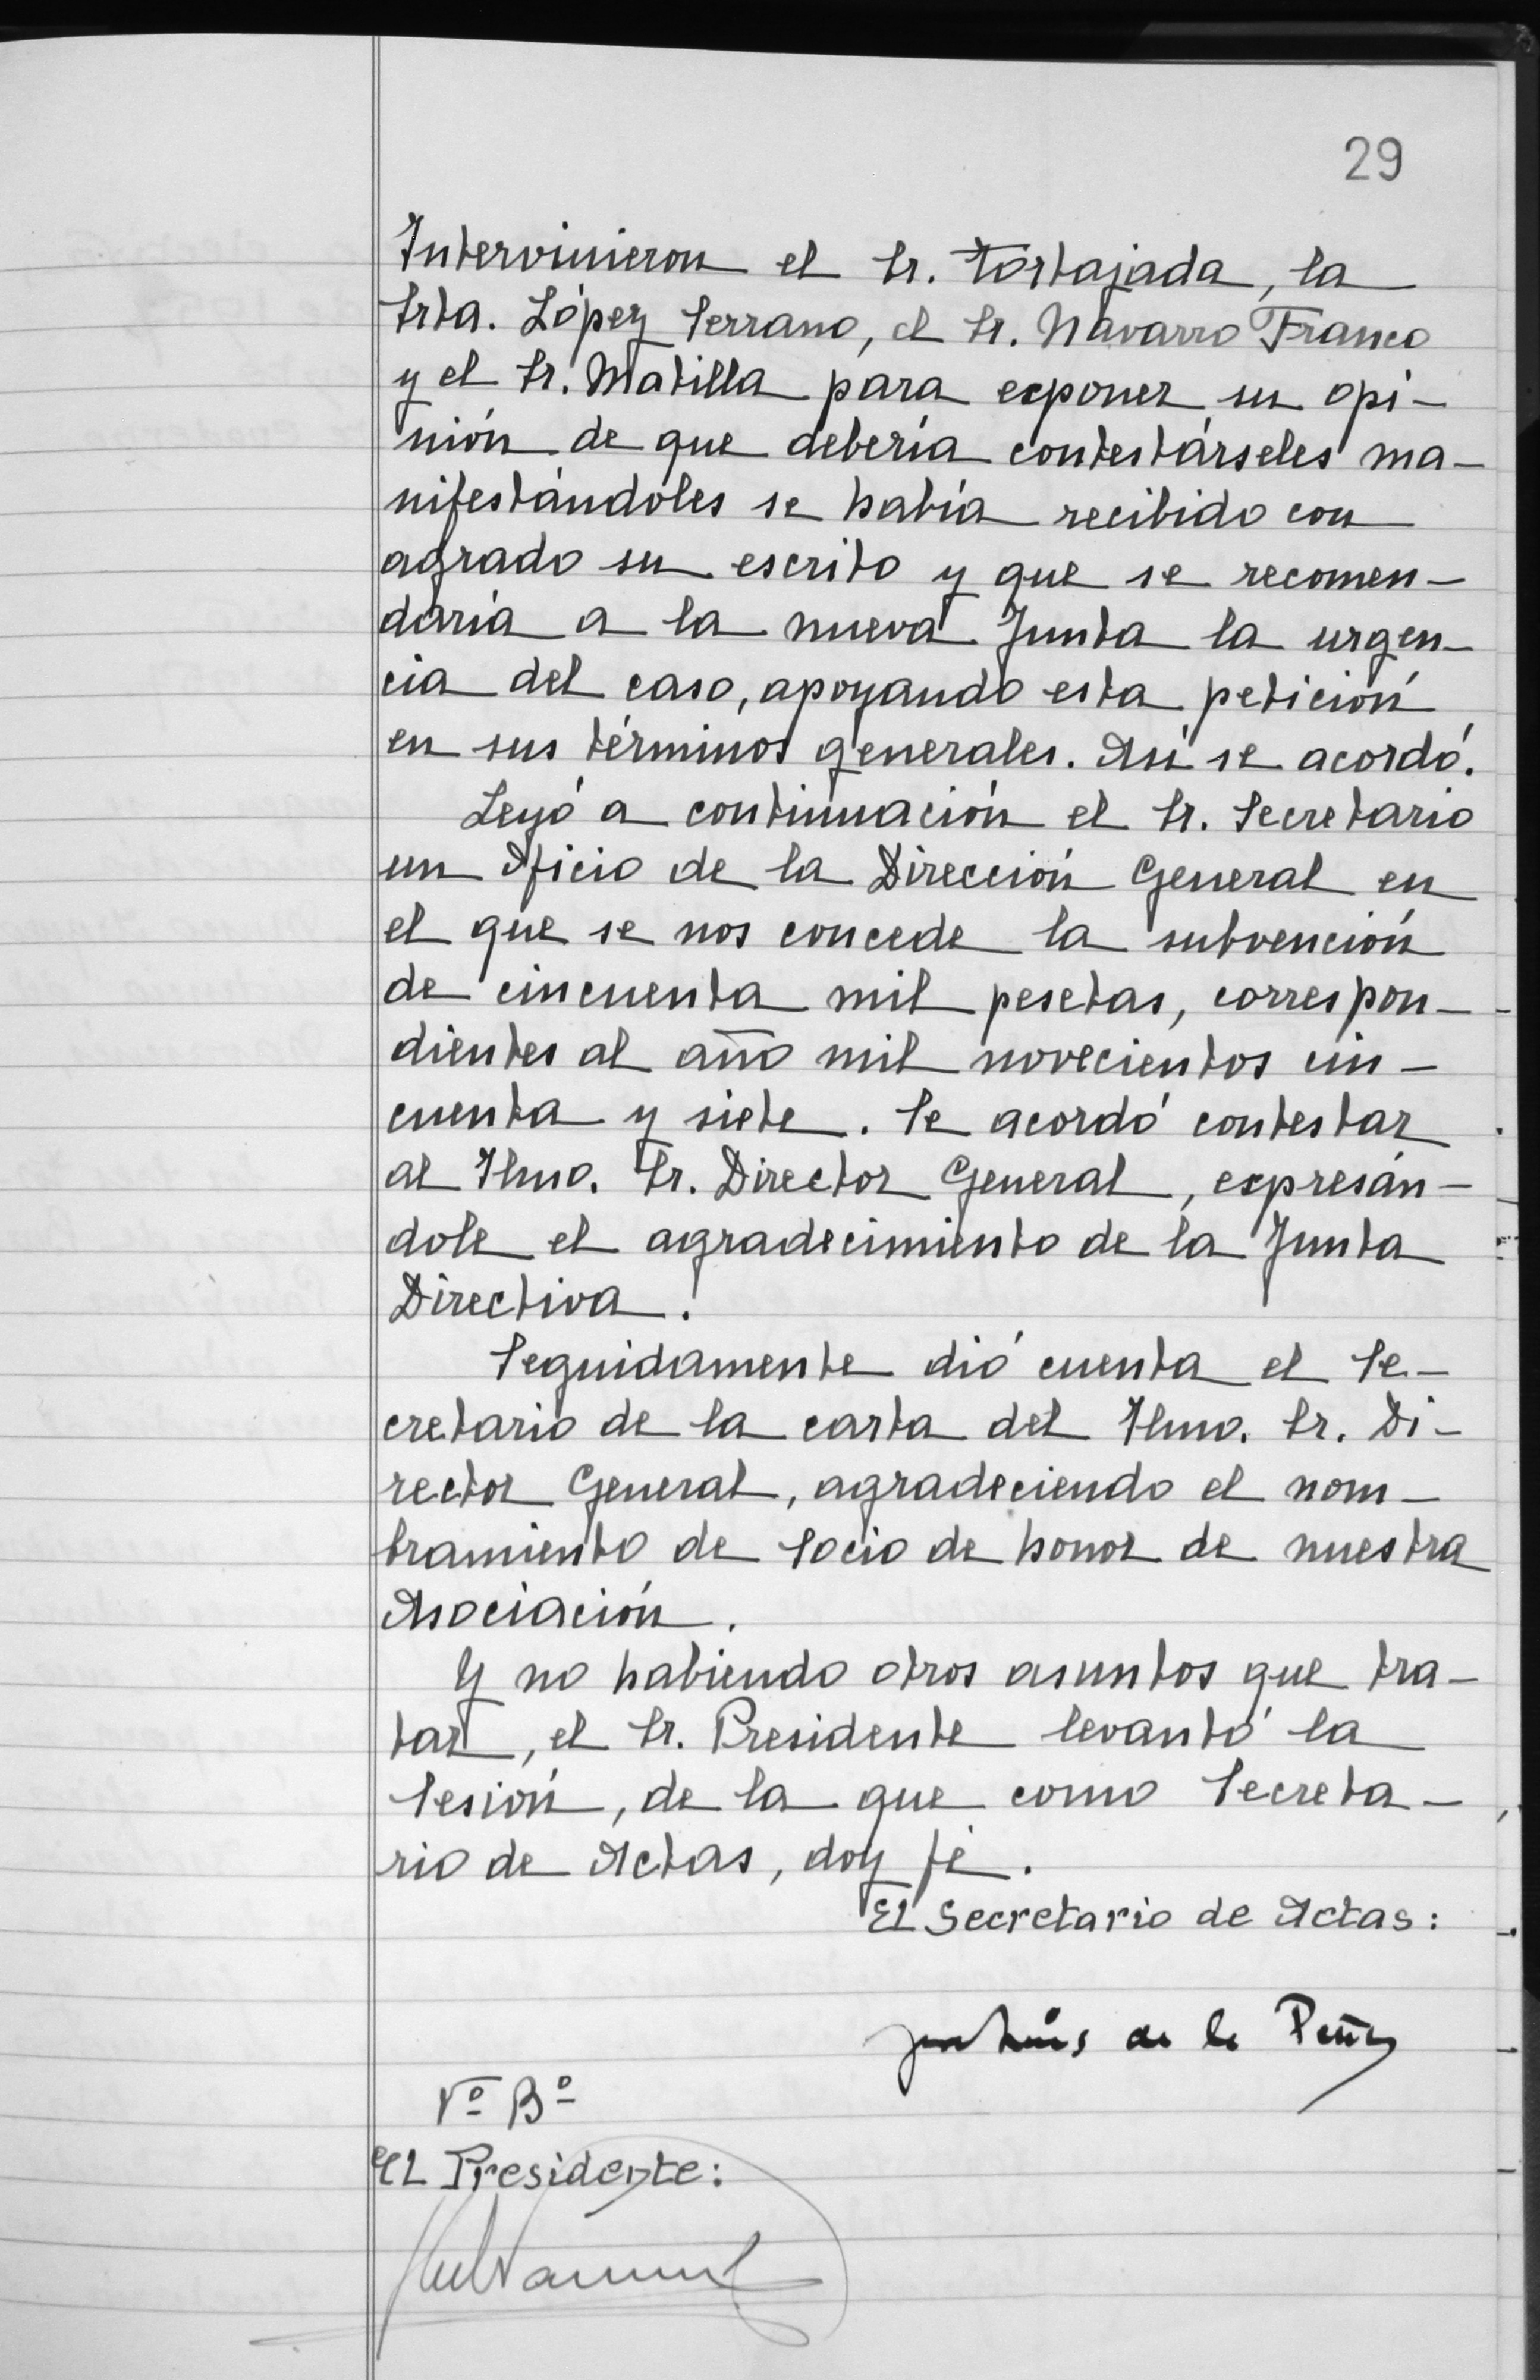 29
Intervinieron el Sr. Tortajada, la
Srta. López Serrano, el Sr. Navarro Franco
y el Sr. Matilla para exponer su opi-
nión de que debería contestárseles ma-
nifestándoles se había recibido con
agrado su escrito y que se recomen-
daría a la nueva Junta la urgen-
cia del caso, apoyando esta petición
en sus términos generales. Así se acordó.
Leyó a continuación el Sr. Secretario
un Oficio de la Dirección General en
el que se nos concede la subvención
de cincuenta mil pesetas, correspon-
dientes al año mil novecientos cin-
cuenta y siete. Se acordó contestar
al Ilmo. Sr. Director General, expresán-
dole el agradecimiento de la Junta
Directiva.
Seguidamente dió cuenta el Se-
cretario de la carta del Ilmo. Sr. Di-
rector General, agradeciendo el nom-
bramiento de Socio de honor de nuestra
Asociación.
Y no habiendo otros asuntos que tra-
tar, el Sr. Presidente levantó la
Sesión, de la que como Secreta-
rio de Actas, doy fé.
El Secretario de Actas:
de la Peña
Vº Bº
El Presidente: